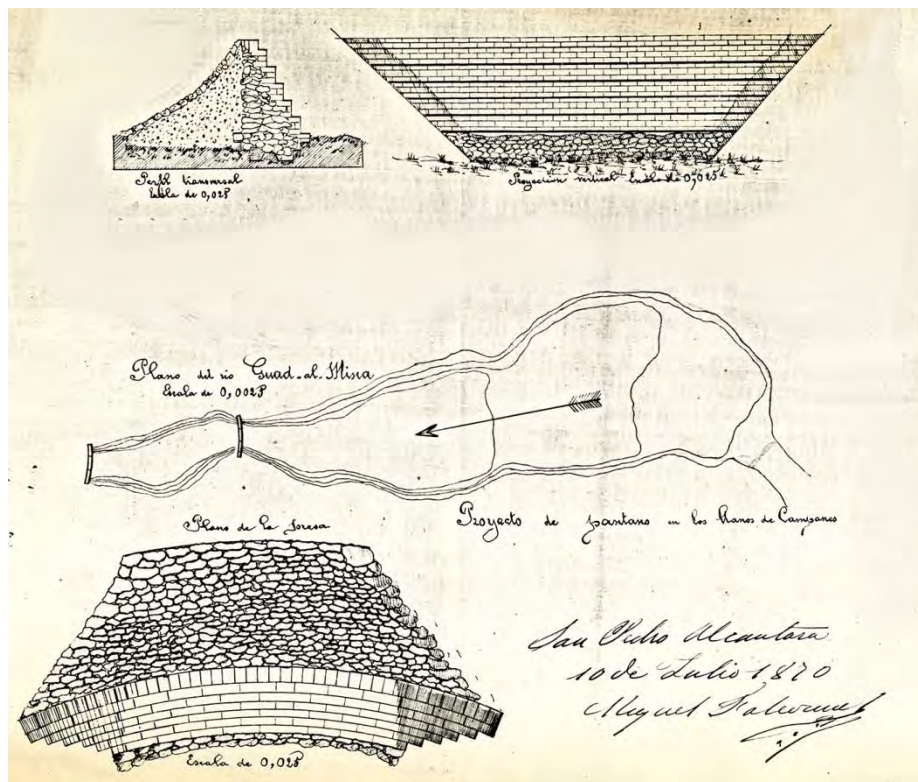 Perfil transversal
Escala de 0,025
Proyección vertical - Escala de 0,025
Plano del río Guad-al-Misa
Escala de 0,0025
Proyecto de pantano en los llanos de Campanes
Plano de la presa
Escala de 0,025
San Pedro Alcantara
10 de Julio 1870
Miguel